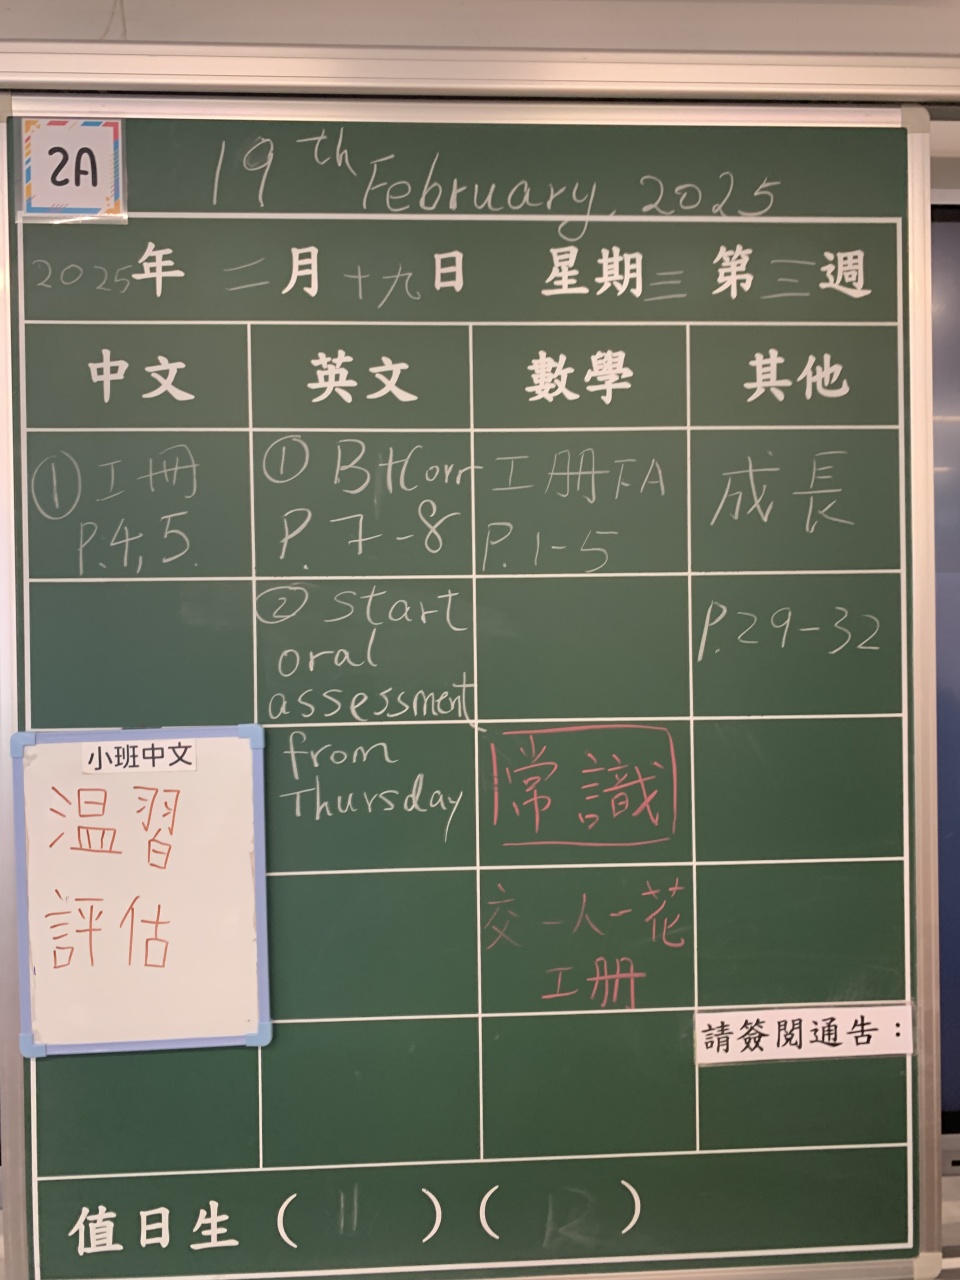 2A
19th February, 2025
2025年二月十九日 星期三 第三週
中文 英文 數學 其他
①工冊
P.4,5.
① Bk Corr
P. 7-8
② Start
oral
assessment
from
Thursday
工冊下A
P.1-5
常識
交一人一花
工冊
成長
P.29-32
小班中文
温習
評估
請簽閱通告：
值日生（11）（12）